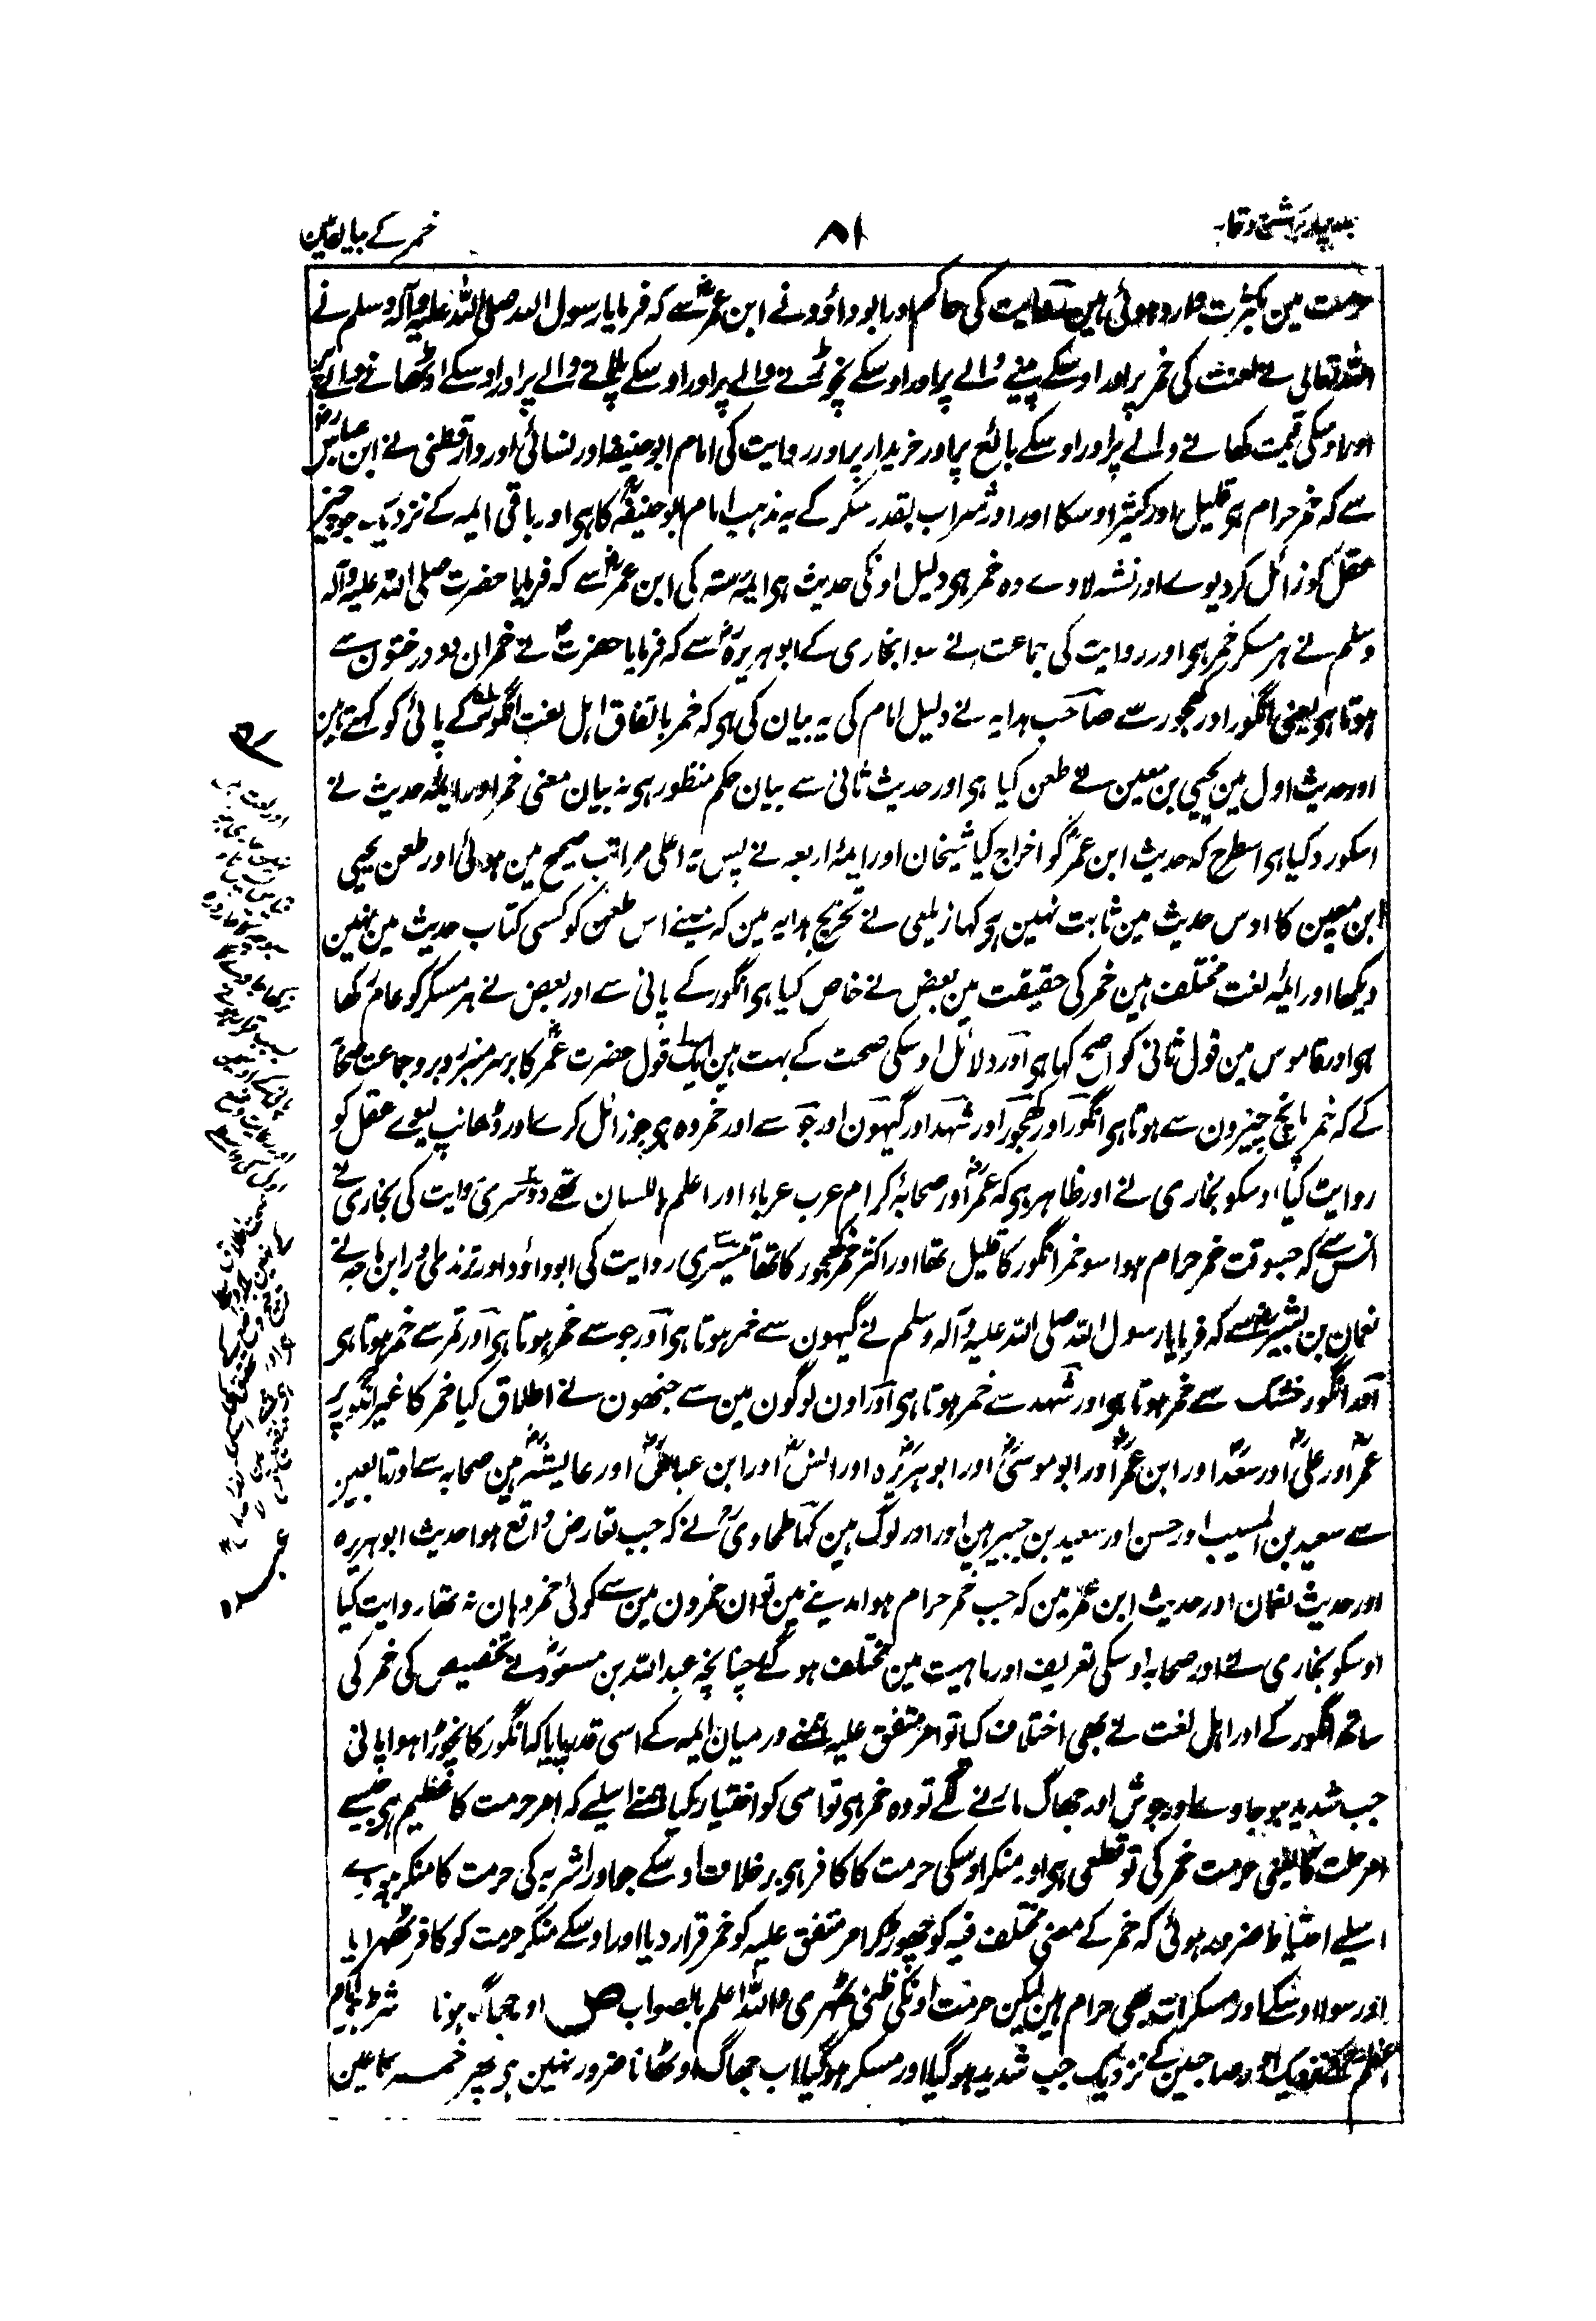 خمر کے بیان مین
۸۱
حرمت مین بکثرت وارد ہوئی ہین روایت کی حاکم اور ابو داؤد نے ابن عمرؓ سے کہ فرمایا رسول اللہ صلی اللہ علیہ وآلہ وسلم نے
اللہ تعالی نے لعنت کی خمر پر اور اوسکے پینے والے پر اور اوسکے نچوڑنے والے پر اور اوسکے پلانے والے پر اور اوسکے اوٹھانے والے پر
اور اوسکی قیمت کھانے والے پر اور اوسکے بائع پر اور خریدار پر اور روایت کی امام ابو حنیفہ اور نسائی اور دارقطنی نے ابن عباسؓ
سے کہ خمر حرام ہی قلیل اور کثیر اوسکا اور اور شراب بقدر سکر کے یہ مذہب امام ابو حنیفہؒ کا ہی اور باقی ایمہ کے نزدیک جو چیز
عقل کو زائل کر دیوے اور نشہ لاوے وہ خمر ہی دلیل اونکی حدیث ہی ایمہ ستہ کی ابن عمرؓ سے کہ فرمایا حضرت صلی اللہ علیہ وآلہ
وسلم نے ہر مسکر خمر ہی اور روایت کی جماعت نے سوا بخاری کے ابو ہریرہؓ سے کہ فرمایا حضرتؐ نے خمر ان دو درختون سے
ہوتا ہی یعنی انگور اور کھجور سے صاحب ہدایہ نے دلیل امام کی یہ بیان کی ہی کہ خمر باتفاق اہل لغت انگور کے پانی کو کہتے ہین
اور حدیث اول مین یحیی بن معین نے طعن کیا ہی اور حدیث ثانی سے بیان حکم منظور ہی نہ بیان معنی خمر اور ایمۂ حدیث نے
اسکو رد کیا ہی اسطرح کہ حدیث ابن عمرؓ کو اخراج کیا شیخان اور ایمۂ اربعہ نے پس یہ اعلی مراتب صحیح مین ہوئی اور طعن یحیی
ابن معین کا اوس حدیث مین ثابت نہین ہی کہا زیلعی نے تخریج ہدایہ مین کہ مینے اس طعن کو کسی کتاب حدیث مین نہین
دیکھا اور ایمۂ لغت مختلف ہین خمر کی حقیقت مین بعض نے خاص کیا ہی انگور کے پانی سے اور بعض نے ہر مسکر کو عام رکھا
ہی اور قاموس مین قول ثانی کو اصح کہا ہی اور دلائل اوسکی صحت کے بہت ہین ایک قول حضرت عمرؓ کا بر سر منبر روبرو جماعت صحابہ
کے کہ خمر پانچ چیزون سے ہوتا ہی انگور اور کھجور اور شہد اور گیہون اور جو سے اور خمر وہ ہی جو زائل کرے اور ڈھانپ لیوے عقل کو
روایت کیا اوسکو بخاری نے اور ظاہر ہی کہ عمرؓ اور صحابۂ کرام عرب عرباء اور اعلم باللسان تھے دوسری روایت کی بخاری نے
انسؓ سے کہ جسوقت خمر حرام ہوا سو خمر انگور کا قلیل تھا اور اکثر خمر کھجور کا تھا تیسری روایت کی ابو داؤد اور ترمذی اور ابن ماجہ نے
نعمان بن بشیرؓ سے کہ فرمایا رسول اللہ صلی اللہ علیہ وآلہ وسلم نے گیہون سے خمر ہوتا ہی اور جو سے خمر ہوتا ہی اور تمر سے خمر ہوتا ہی
اور انگور خشک سے خمر ہوتا ہی اور شہد سے خمر ہوتا ہی اور اون لوگون مین سے جنھون نے اطلاق کیا خمر کا غیر انگور پر
عمرؓ اور علیؓ اور سعدؓ اور ابن عمرؓ اور ابو موسیؓ اور ابو ہریرہؓ اور انسؓ اور ابن عباسؓ اور عایشہؓ ہین صحابہ سے اور تابعین
سے سعید بن المسیب اور حسن اور سعید بن جبیر ہین اور اور لوگ ہین کہا طحاویؒ نے کہ جب تعارض واقع ہوا حدیث ابو ہریرہ
اور حدیث نعمان اور حدیث ابن عمرؓ مین کہ جب خمر حرام ہوا مدینے مین تو ان خمرون مین سے کوئی خمر وہان نہ تھا روایت کیا
اوسکو بخاری نے اور صحابہ اوسکی تعریف اور ماہیت مین مختلف ہو گئے چنانچہ عبد اللہ بن مسعودؓ نے تخصیص کی خمر کی
ساتھ انگور کے اور اہل لغت نے بھی اختلاف کیا تو امر متفق علیہ ہمنے درمیان ایمہ کے اسی قدر پایا کہ انگور کا نچوڑا ہوا پانی
جب شدید ہو جاوے اور جوش اور جھاگ مارنے لگے تو وہ خمر ہی تو اسی کو اختیار کیا ہمنے اسلیے کہ امر حرمت کا عظیم ہی جیسے
امر حلت کا یعنی حرمت خمر کی تو قطعی ہی اور منکر اوسکی حرمت کا کافر ہی برخلاف اوسکے جو اور اشربہ کی حرمت کا منکر ہووے
اسلیے احتیاط ضرور ہوئی کہ خمر کے معنی مختلف فیہ کو چھوڑ کر امر متفق علیہ کو خمر قرار دیا اور اوسکے منکر حرمت کو کافر ٹھہرایا
اور سوا اوسکے اور مسکرات بھی حرام ہین لیکن حرمت اونکی ظنی ٹھہری واللہ اعلم بالصواب ص اور جھاگ ہونا شرط امام
اعظم کے نزدیک اور صاحبین کے نزدیک جب شدید ہو گیا اور مسکر ہو گیا اب جھاگ اوٹھانا ضرور نہین ہی پھر خمر